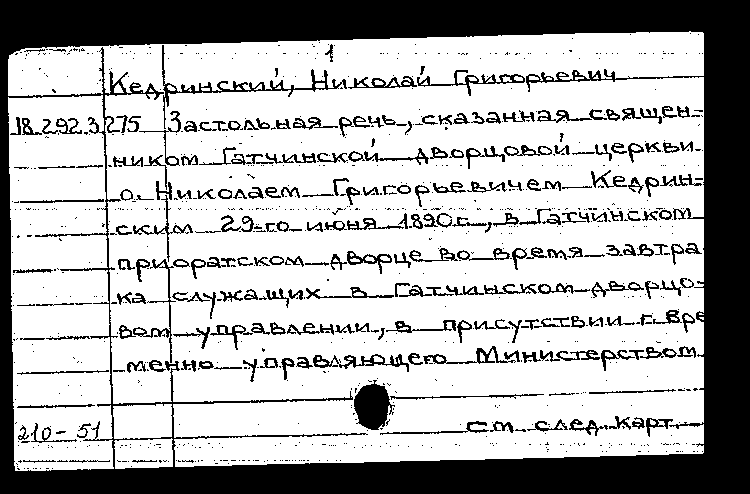 1
Кедринский, Николай Григорьевич
18.292.3.275 Застольная речь, сказанная священ-
ником Гатчинской дворцовой церкви
о. Николаем Григорьевичем Кедрин-
ским 29-го июня 1890 г., в Гатчинском
приоратском дворце во время завтра
ка служащих в Гатчинском дворцо-
вом управлении, в присутствии г. Вре
менно управляющего Министерством
210-51 см. след. карт.